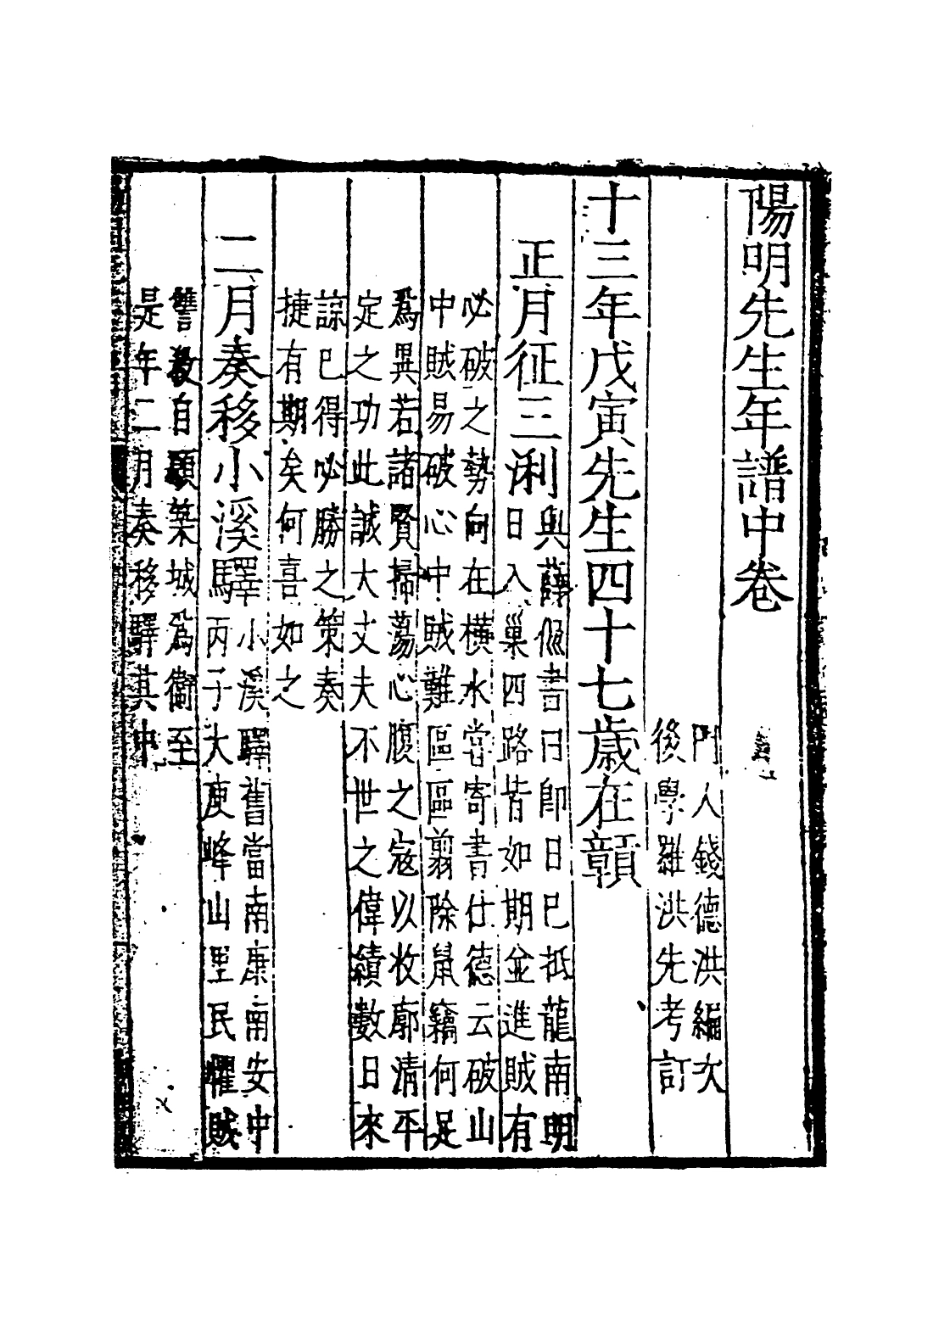 陽明先生年譜中卷
門人錢德洪編次
後學羅洪先考訂
十三年戊寅先生四十七歲在贛
正月征三浰
與薛侃書曰即日已抵龍南明
日入巢四路皆如期並進賊有
必破之勢向在橫水嘗寄書仕德云破山
中賊易破心中賊難區區翦除鼠竊何足
為異若諸賢掃蕩心腹之寇以收廓清平
定之功此誠大丈夫不世之偉績數日來
諒已得必勝之策奏
捷有期矣何喜如之
二月奏移小溪驛
小溪驛舊當南康南安中
丙子大庾峰山里民懼賊
讐殺自願築城為衛至
是年二月奏移驛其中